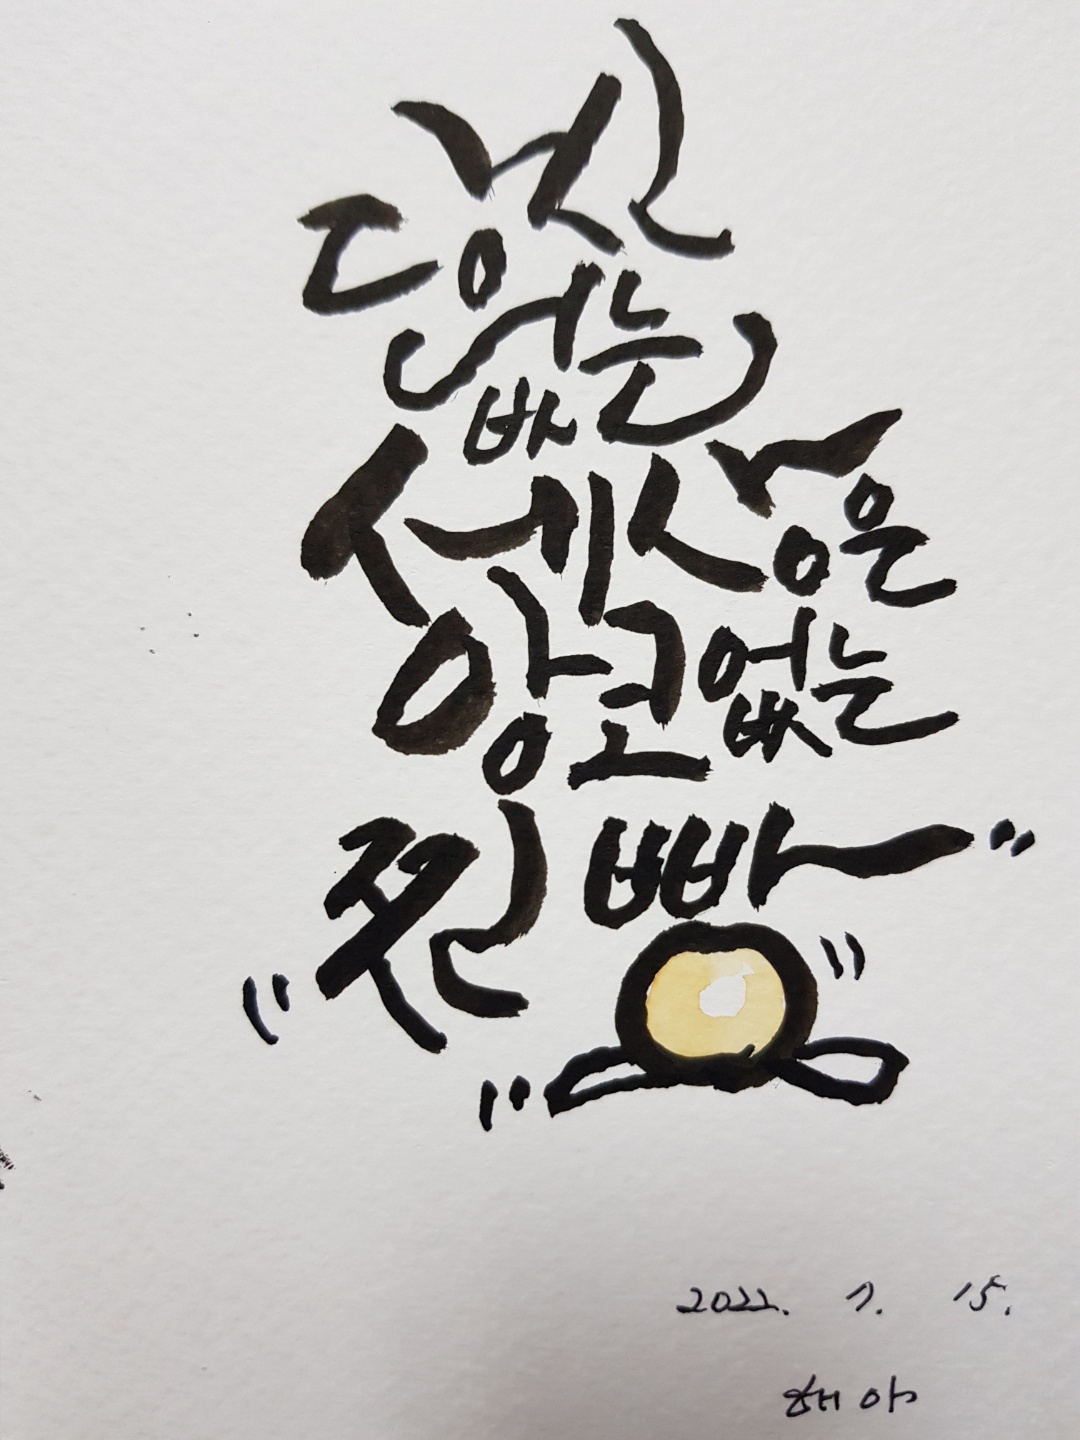 당신
없는
세상은
앙코없는
"찐빵"
2022. 7. 15.
해야